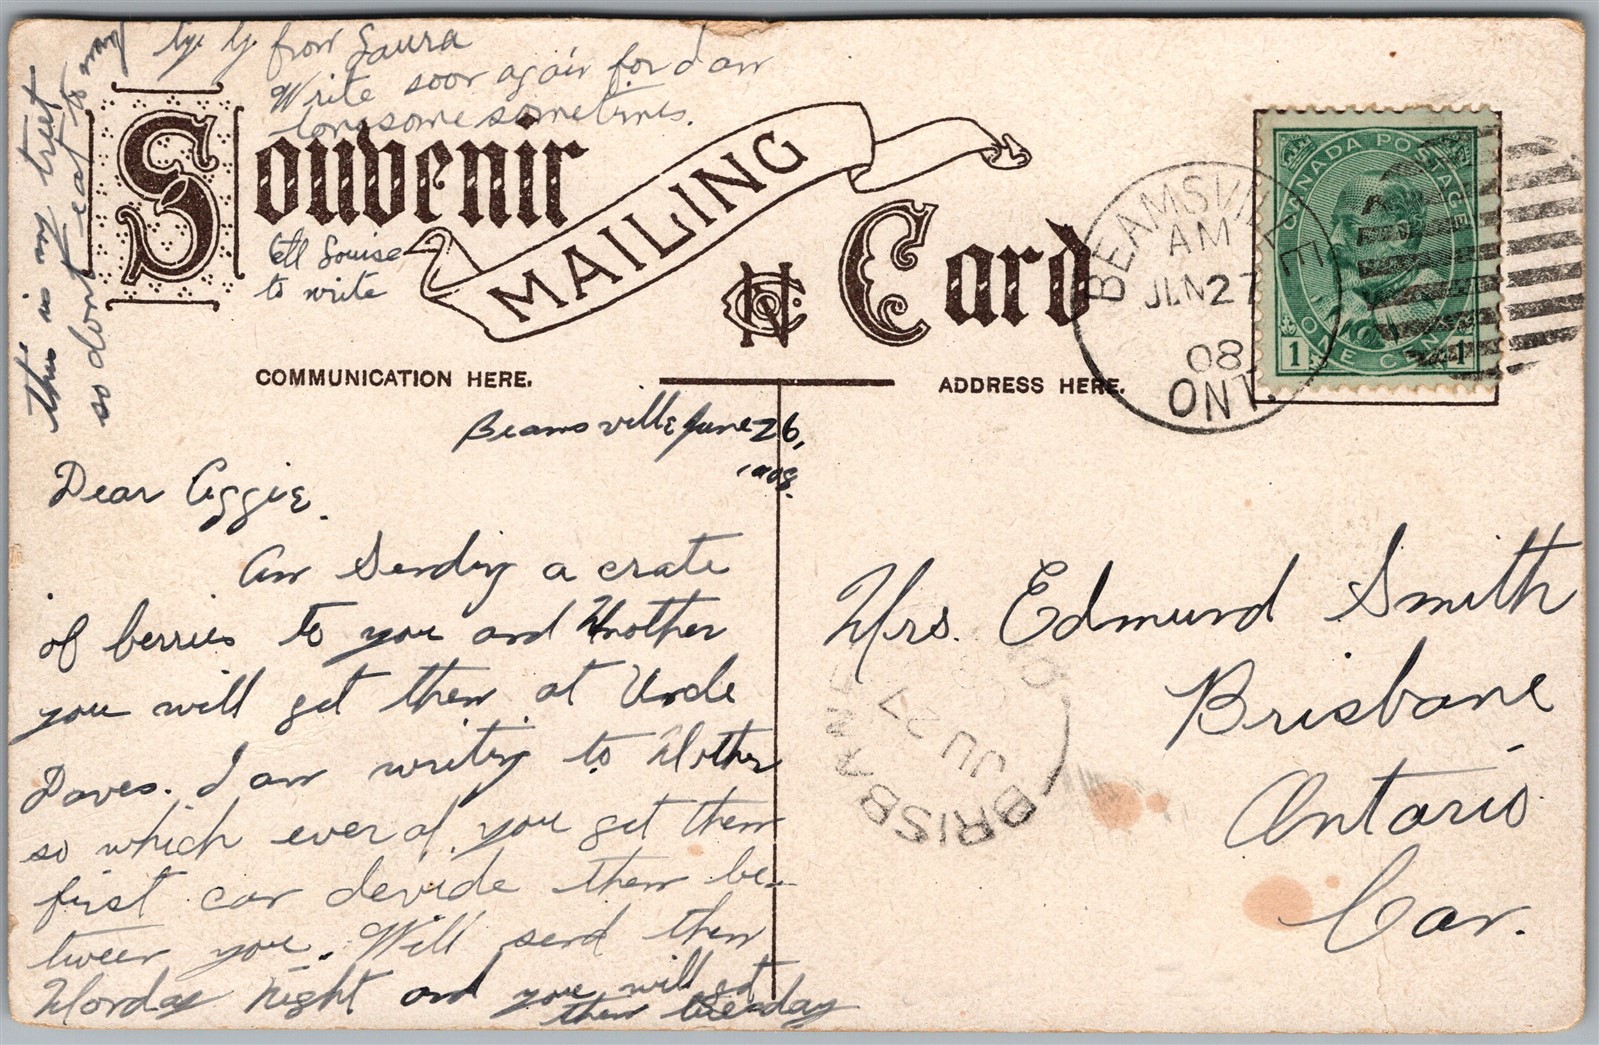 this is my treat
so dont eat to many
by by from Laura
Write soon again for I am
lonesome sometimes.
Souvenir
MAILING
Card
tell Louise
to write
COMMUNICATION HERE.
ADDRESS HERE.
CANADA POSTAGE
ONE CENT
1 1
BEAMSVILLE
AM
JUN 27
08
ONT.
Beamsville June 26,
1908.
Dear Aggie.
Am Sending a crate
of berries to you and Mother
you will get them at Uncle
Daves. I am writing to Mother
so which ever of you get them
first can devide them be-
tween you. Will send them
Monday night and you will get
them tuesday
Mrs. Edmund Smith
Brisbane
Ontario
Can.
BRISBANE
JU 27